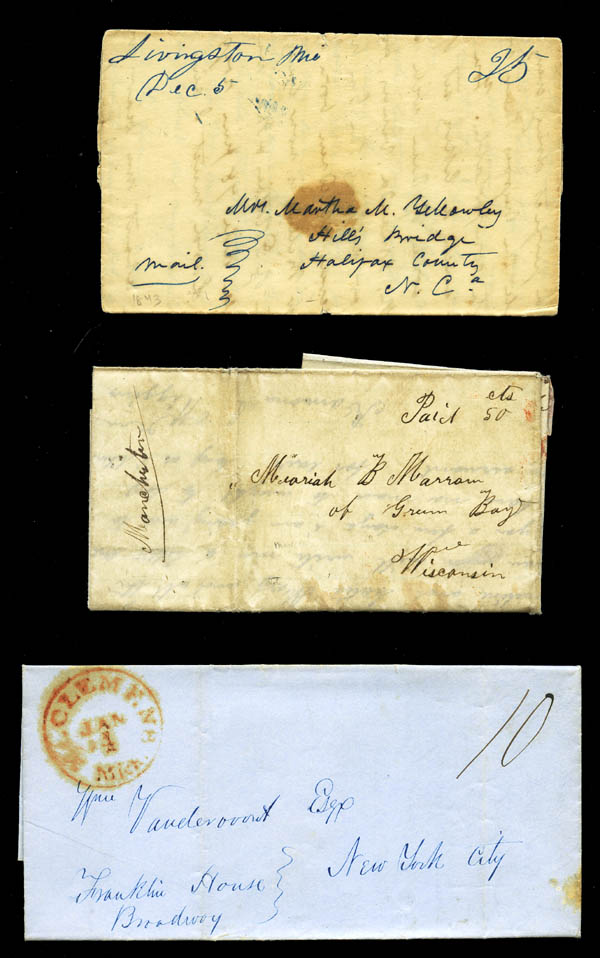 Livingston Mi
Dec. 5
25
Mrs. Martha M. Yellowley
Hill's Bridge
Halifax County
N. Ca
mail.
1843
Manchester
Paid cts 50
Mariah B Marram
of Grum Bay
Wisconsin
MT. CLEMENS
JAN
Mich.
10
Wm Vandervoort Esqr
New York City
Franklin House
Broadway